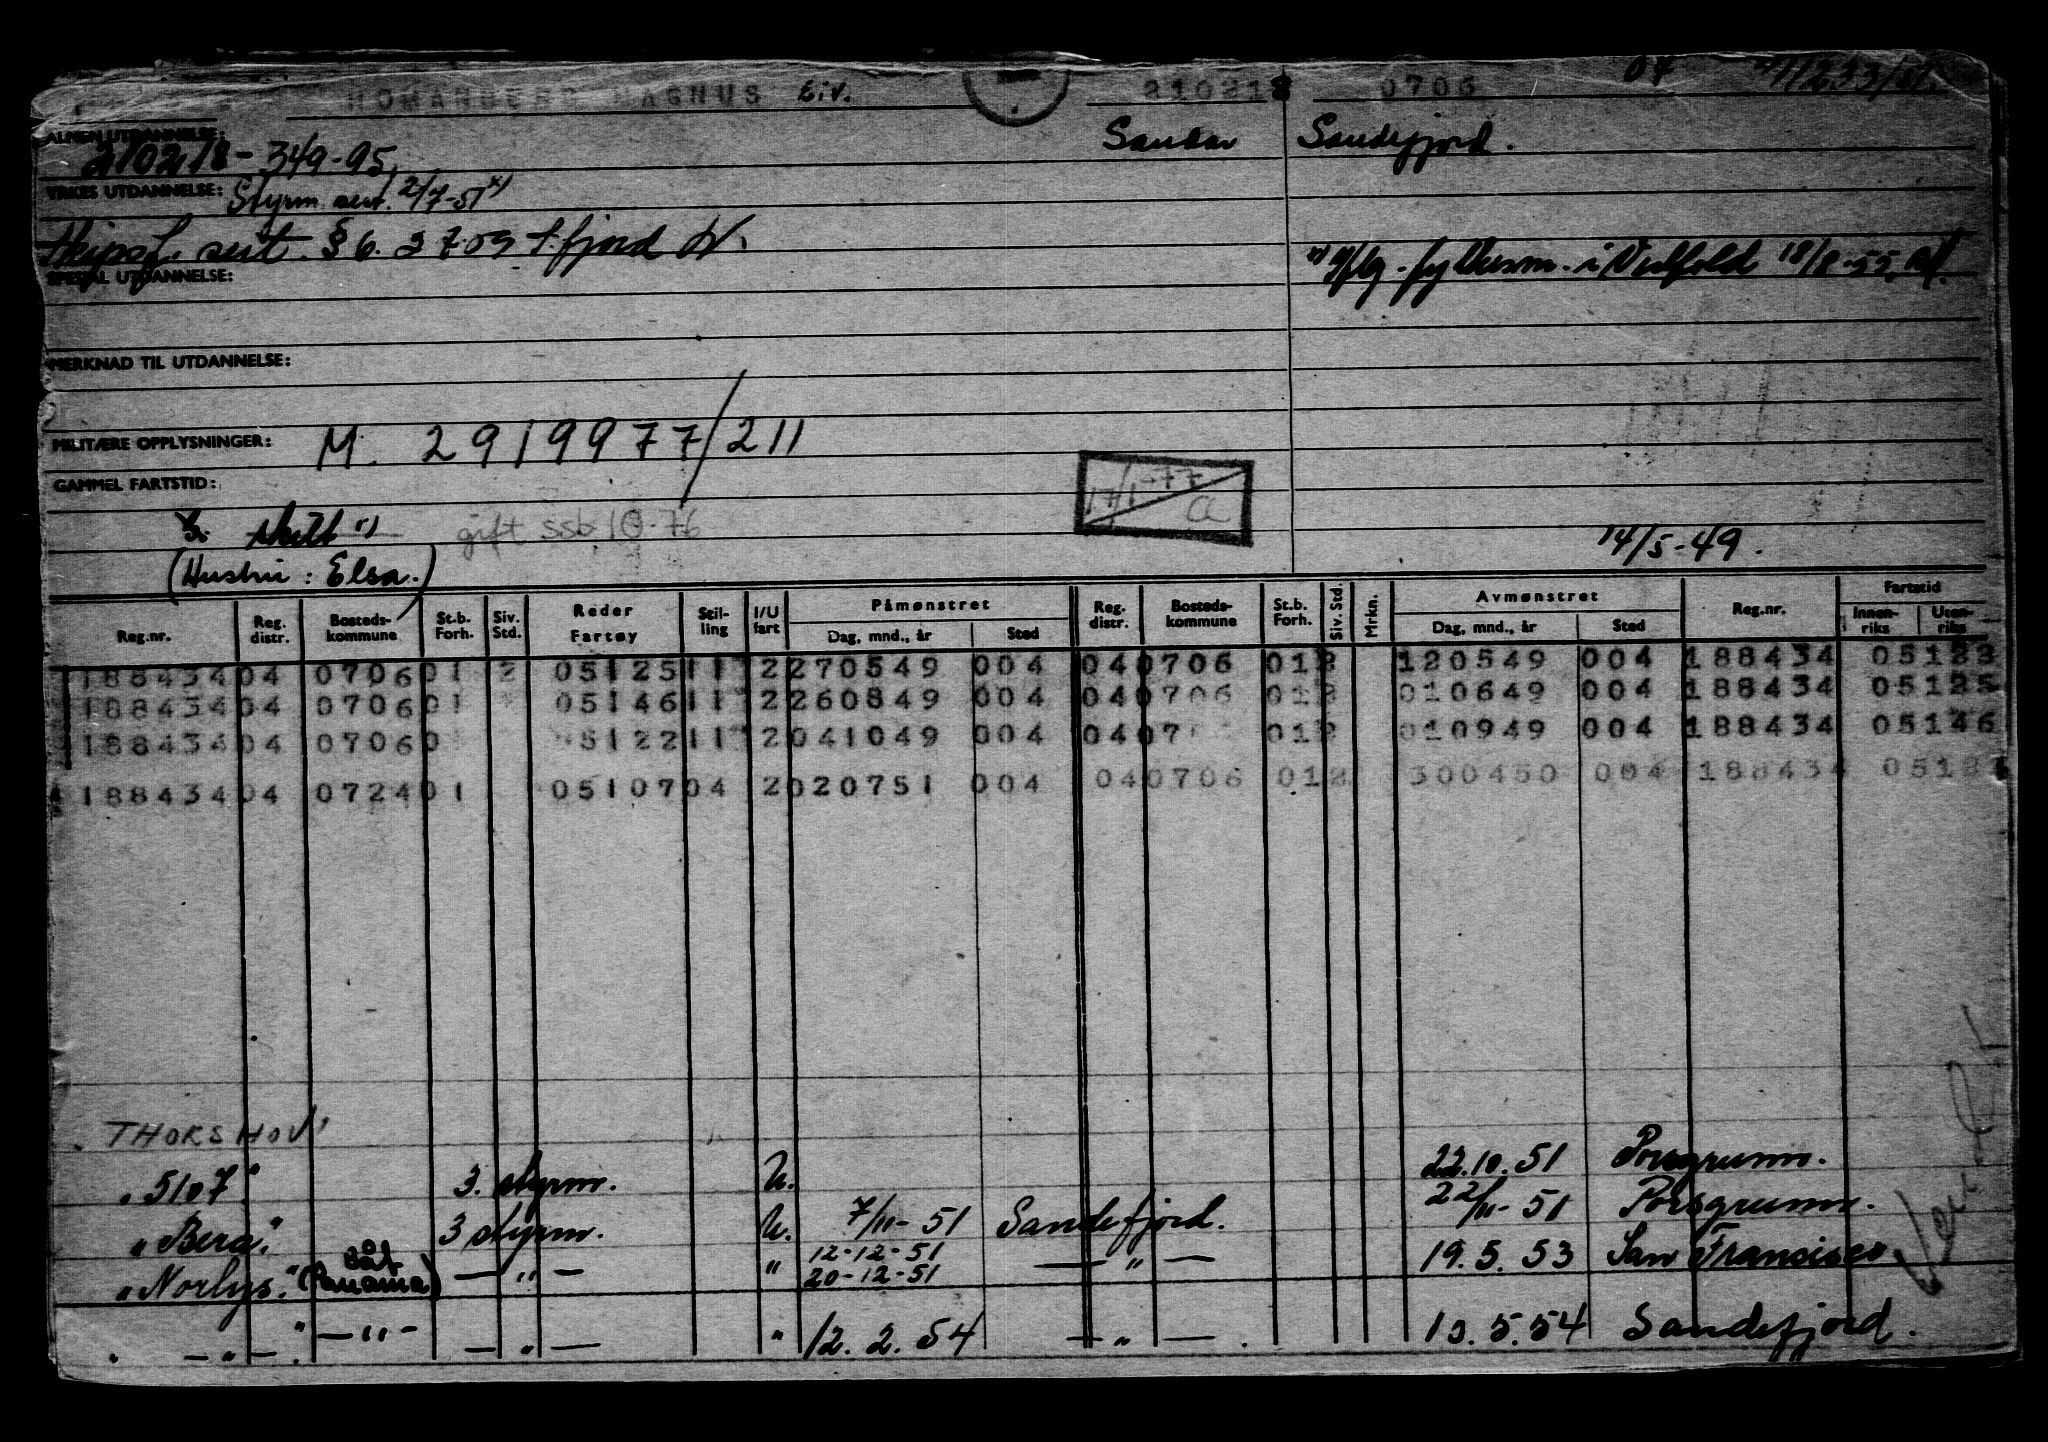 MAGNUS Eiv. 210218 0706 04
Sandar Sandefjord.
ALMEN UTDANNELSE:
210218-349-95
YRKES UTDANNELSE: Styrm. sert. 2/7-51 x)
sert. § 6.
SPESIAL UTDANNELSE:
i Vestfold 18/8-55
MERKNAD TIL UTDANNELSE:
MILITÆRE OPPLYSNINGER: M. 2919977/211
GAMMEL FARTSTID:
17/1-77
skilt gift ssb 10-76
14/5-49.
(Hustru: Elsa.)
Reg.nr. Reg. distr. Bosteds-kommune St.b. Forh. Siv. Std. Reder Fartøy Stilling I/U fart Påmønstret Dag, mnd., år Sted Reg. distr. Bosteds-kommune St.b. Forh. Siv. Std. Mrkn. Avmønstret Dag, mnd., år Sted Reg.nr. Fartstid Innenriks Utenriks
188434 04 0706 01 2 05125 11 2 270549 004 04 0706 01 2 120549 004 188434 05123
188434 04 0706 01 05146 11 2 260849 004 04 0706 01 2 010649 004 188434 05125
188434 04 0706 0 5122 11 2 041049 004 04 07 01 2 010949 004 188434 05146
188434 04 0724 01 05107 04 2 020751 004 04 0706 01 2 300450 004 188434 0512
THORSHOV
"5107" 3. styrm. U. 22.10.51 Porsgrunn.
"Bera." 3 styrm. U. 7/11-51 Sandefjord. 22/11-51 Porsgrunn.
"Norlys." båt (Panama) — " — " 12-12-51 20-12-51 — " — 19.5.53 San Francisco
" — " — " — " — — " — " 12.2.54 — " — . 13.5.54 Sandefjord.